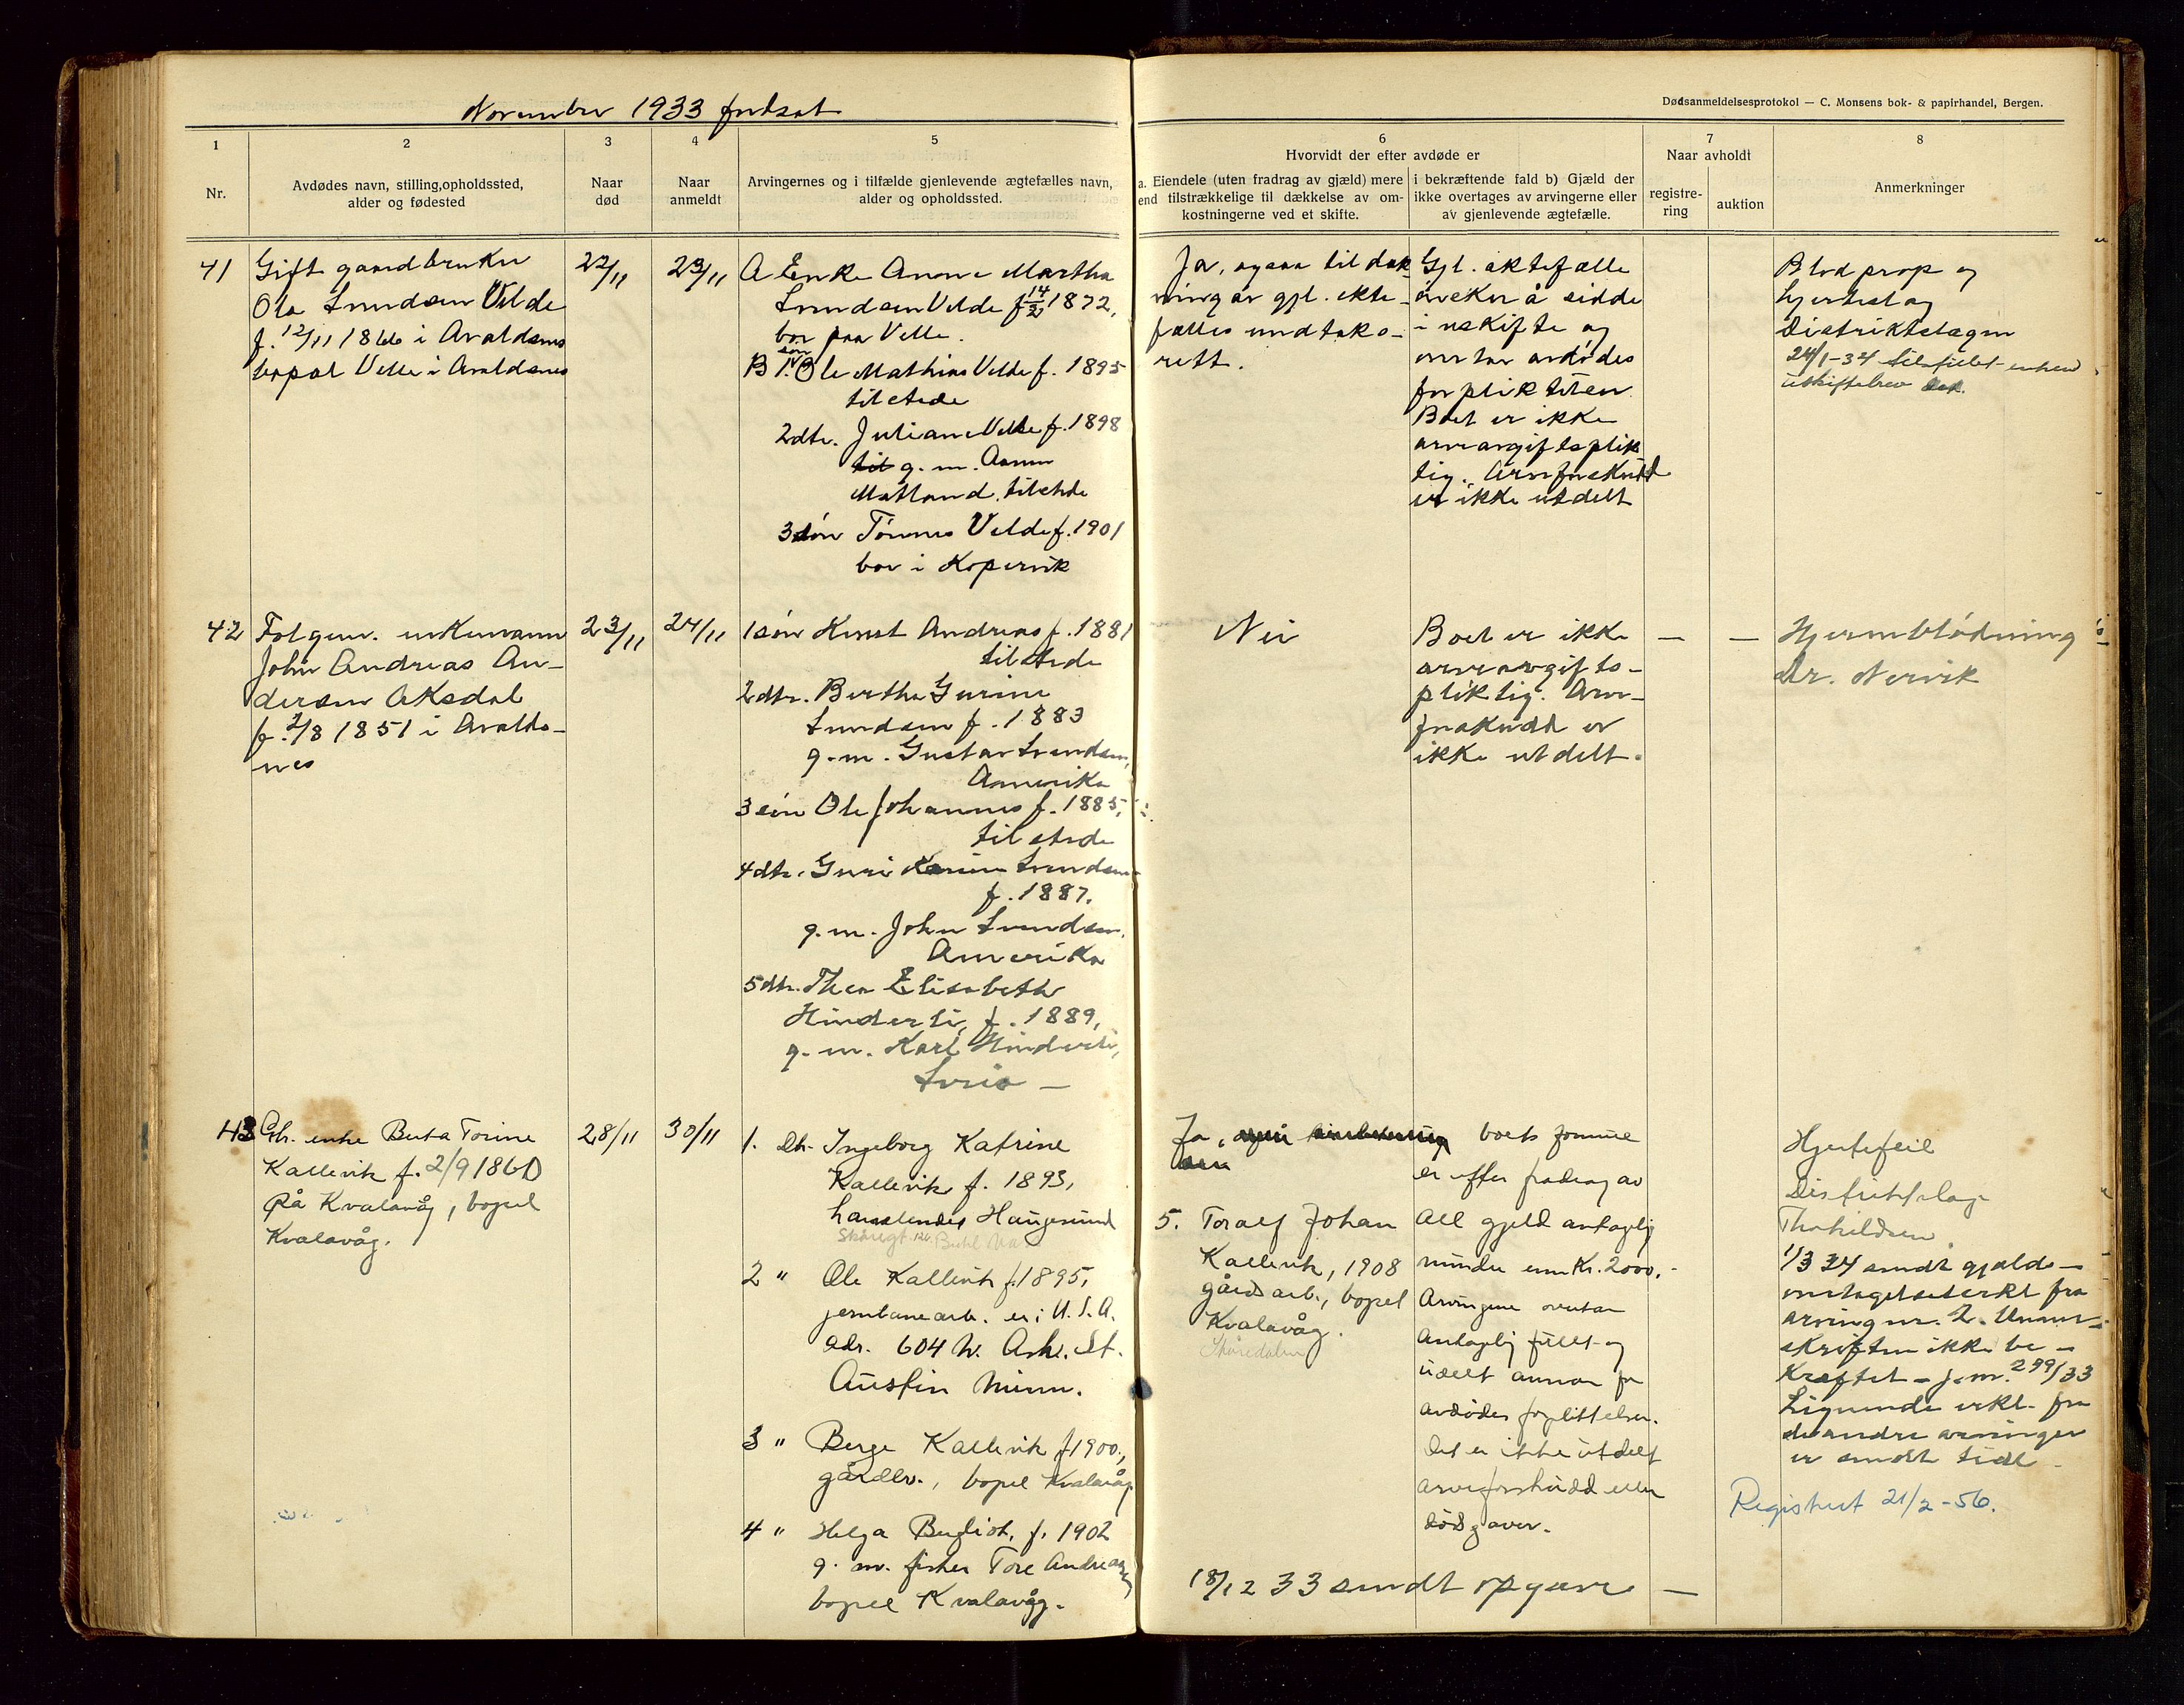 November 1933 fortsat
Dødsanmeldelsesprotokol — C. Monsens bok- & papirhandel, Bergen.
1
Nr.
2
Avdødes navn, stilling, opholdssted,
alder og fødested
3
Naar
død
4
Naar
anmeldt
5
Arvingernes og i tilfælde gjenlevende ægtefælles navn,
alder og opholdssted.
6
Hvorvidt der efter avdøde er
a. Eiendele (uten fradrag av gjæld) mere
end tilstrækkelige til dækkelse av om-
kostningerne ved et skifte.
i bekræftende fald b) Gjæld der
ikke overtages av arvingerne eller
av gjenlevende ægtefælle.
7
Naar avholdt
registre-
ring
auktion
8
Anmerkninger
41
Gift gaardbruker
Ola Svendsen Velde
f. 12/11 1866 i Avaldsnes
bopæl Velle i Avaldsnes
22/11
23/11
A Enke Anne Martha
Svendsen Velde f 14/2 1872,
bor paa Velle.
B 1. søn Ole Mathias Velde f. 1895
tilstede
2 dtr. Juliane Velde f. 1898
til g. m.
Matland, tilstede
3 søn Tønnes Velde f. 1901
bor i Kopervik
Ja, ogsaa til dæk-
ning av gjl. ekte-
fælles undtaks-
rett.
Gjl. ektefælle
ønsker å sidde
i uskifte og
overtar avdødes
forpliktelser.
Boet er ikke
arveavgiftsplik-
tig. Arveforskudd
er ikke utdelt
Blodprop og
hjerteslag
Distriktslægen
24/1-34
uskiftebrev
42
Folgem. enkemann
John Andreas An-
dersen Aksdal
f. 2/8 1851 i Avalds-
nes
23/11
24/11
1 søn Knut Andreas f. 1881
tilstede
2 dtr. Bertha Gurine
Svendsen f. 1883
g. m. Gustav Svendsen,
Amerika
3 søn Ole Johannes f. 1885,
tilstede
4 dtr. Guri Karine Svendsen
f. 1887.
g. m. John Svendsen.
Amerika
5 dtr. Thea Elisabeth
Hinderli, f. 1889,
g. m. Karl Hinderli,
Sveio —
Nei
Boet er ikke
arveavgifts-
pliktig. Arve-
forskudd er
ikke utdelt.
—
—
Hjerneblødning
Dr. Nervik
43
enke Berta Torine
Kallevik f. 2/9 1860
på Kvalavåg, bopel
Kvalavåg.
28/11
30/11
1. Dtr. Ingeborg Katrine
Kallevik f. 1893,
Haugesund
2 " Ole Kallevik f. 1895,
jernbanearb. er i U.S.A.
adr. 604 W. Ash. St.
Austin Minn.
3 " Berge Kallevik f 1900,
gårdbr., bopel Kvalavåg
4 " Helga Bergliot, f. 1902
g. m. fisker Tore Andreasen
bopel Kvalavåg.
Ja,
5. Toralf Johan
Kallevik, 1908
gårdsarb., bopel
Kvalavåg.
boets formue
er efter fradrag av
all gjeld antagelig
mindre enn Kr. 2000.-
Arvingene overtar
antagelig fullt og
udelt ansvar for
avdødes forpliktelser.
Det er ikke utdelt
arveforskudd eller
dødsgaver.
18/12 33 sendt opgave —
Hjertefeil
Distriktslæge
Thorkildsen
1/3 34 sendt gjælds-
overtagelseserkl fra
arving nr. 2. Unner-
skriften ikke be-
kræftet - j. nr. 299/33
Lignende erkl. fra
de andre arvinger
er sendt tidl.
Registrert 21/2-56.